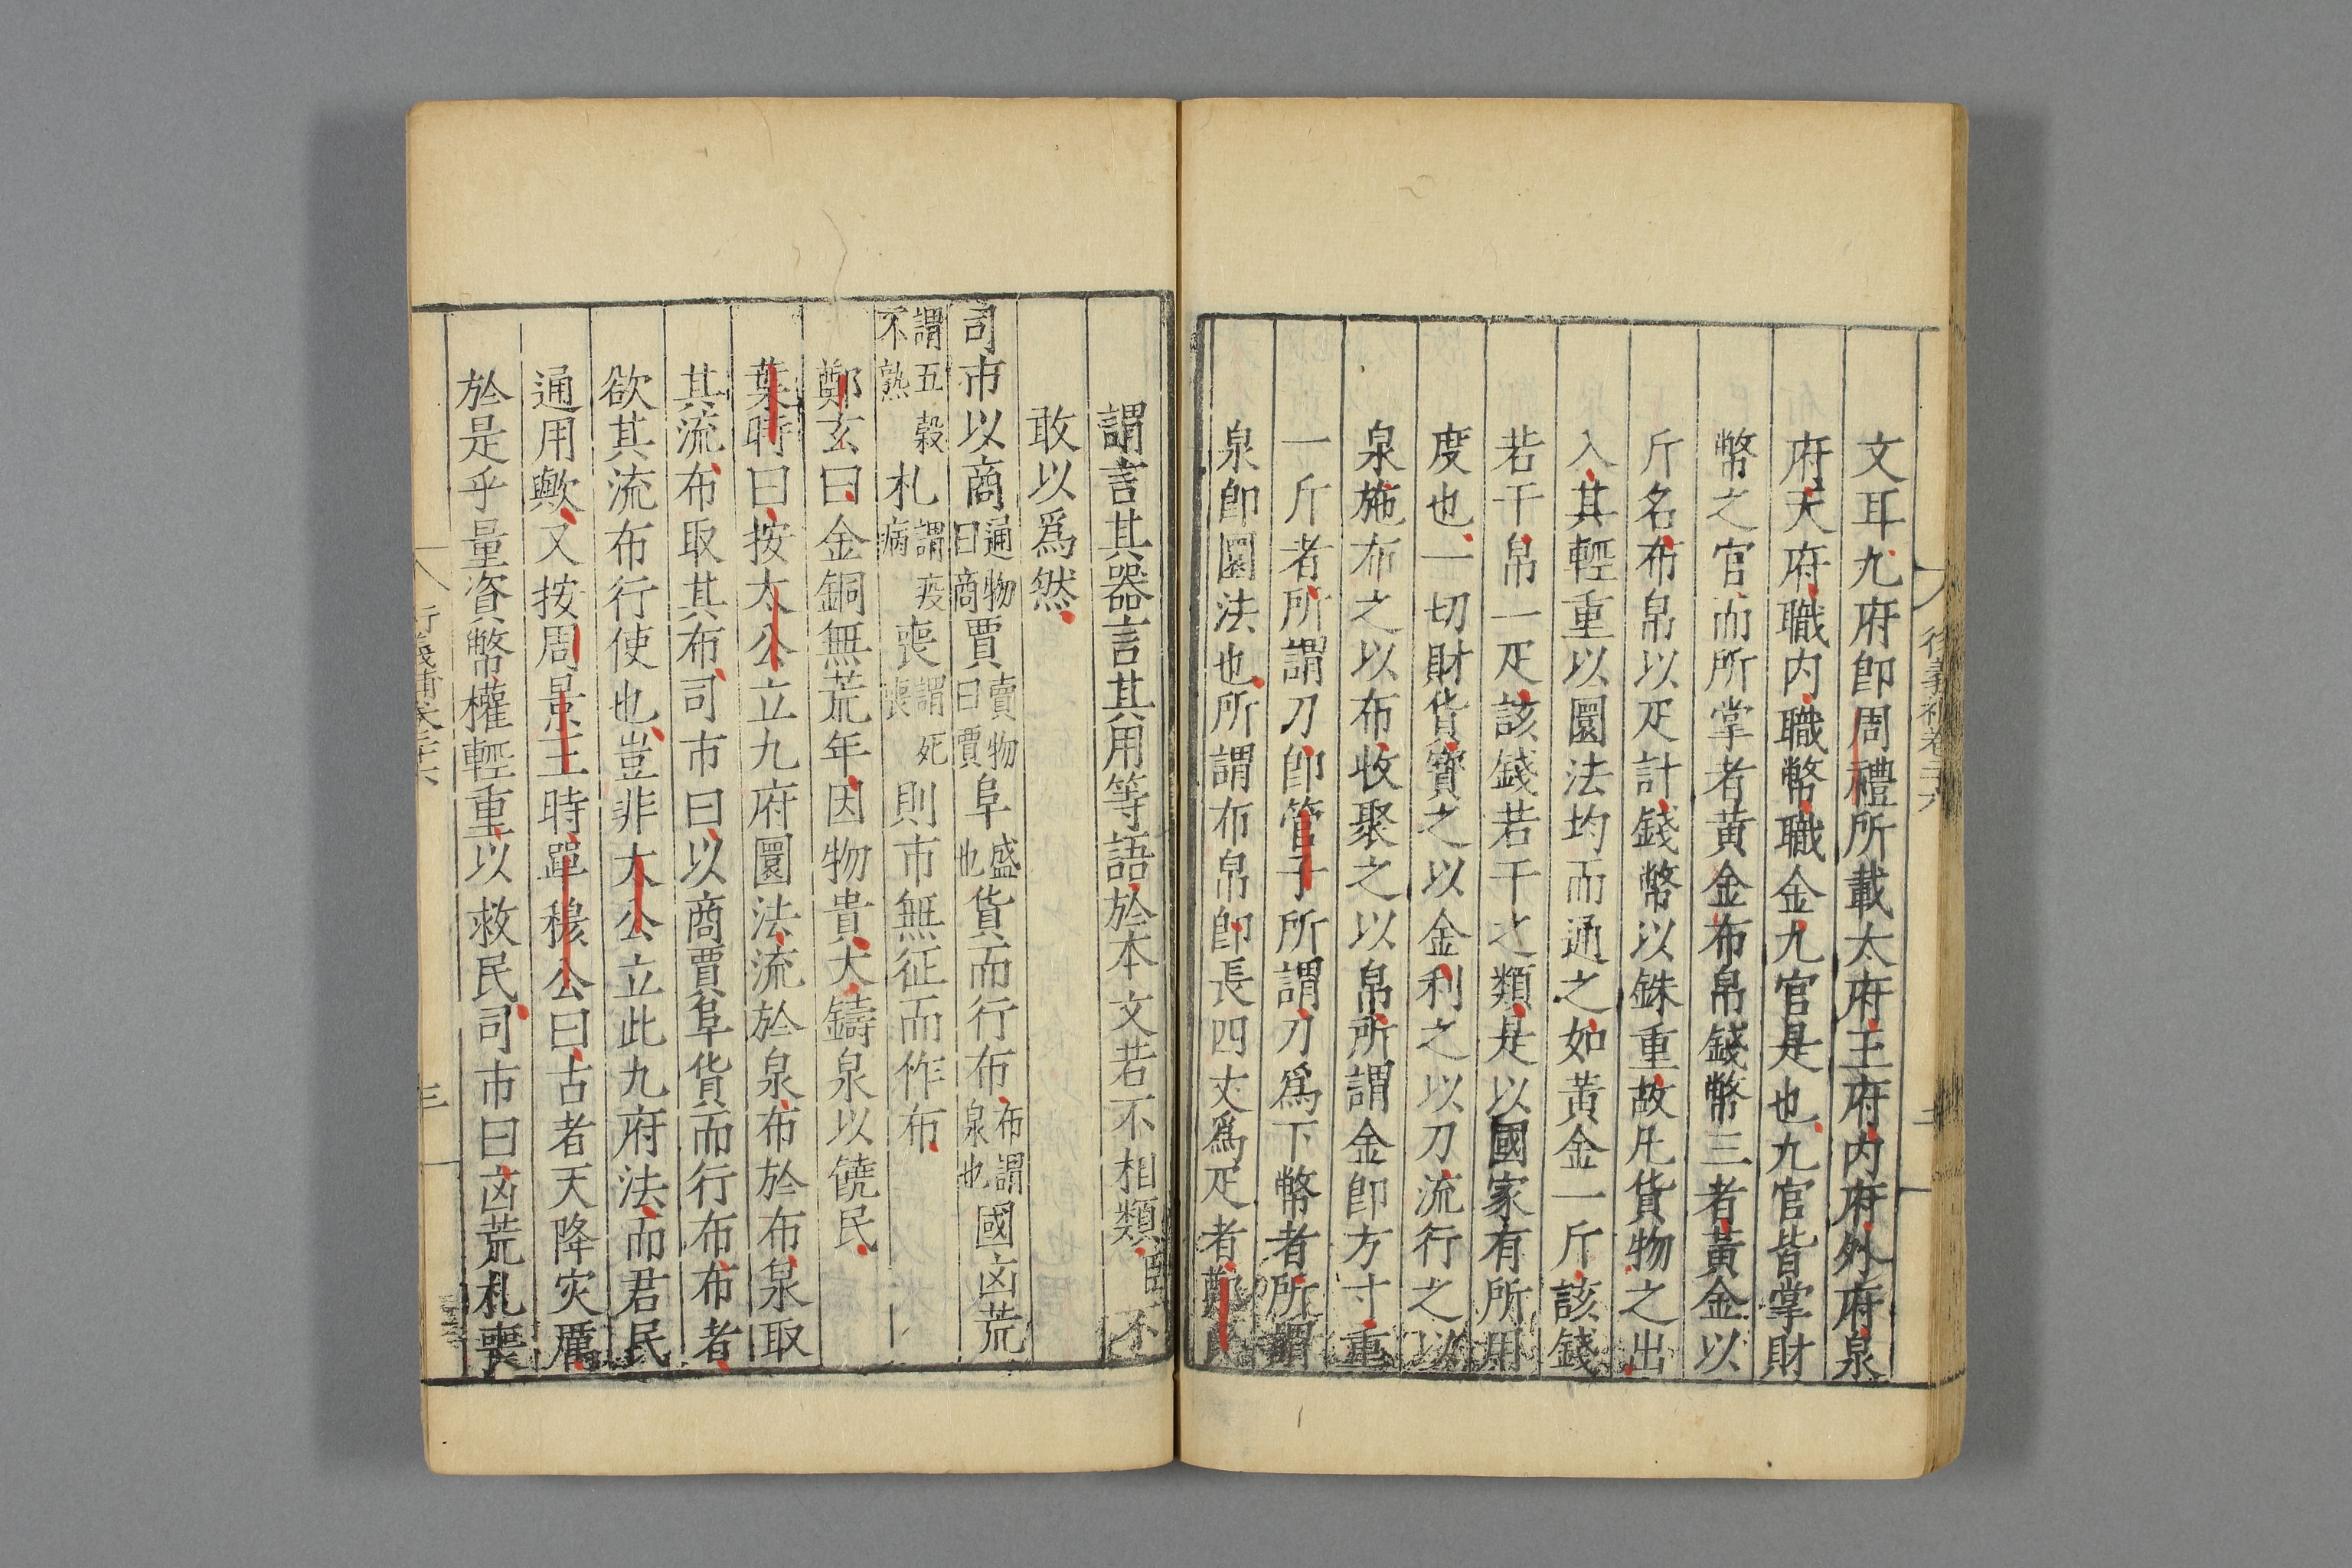 文耳九府卽周禮所載太府王府内府外府泉
府天府職内職幣職金九官是也九官皆掌財
幣之官而所掌者黄金布帛錢幣三者黄金以
斤名布帛以疋計錢幣以銖重故凡貨物之出
入其輕重以圜法均而通之如黄金一斤該錢
若干帛一疋該錢若干之類是以國家有所用
度也一切財貨寳之以金利之以刀流行之以
泉施布之以布收聚之以帛所謂金卽方寸重
一斤者所謂刀卽管子所謂刀爲下幣者所謂
泉卽圜法也所謂布帛卽長四丈爲疋者鄭氏
謂言其器言其用等語於本文若不相類臣不
敢以爲然
司市以商通物曰商賈賣物曰賈阜盛也貨而行布布謂泉也國凶荒
謂五穀不熟札謂疫病喪謂死喪則市無征而作布
鄭玄曰金銅無荒年因物貴大鑄泉以饒民
葉時曰按太公立九府圜法流於泉布於布泉取
其流布取其布司市曰以商賈阜貨而行布布者
欲其流布行使也豈非太公立此九府法而君民
通用歟又按周景王時單穆公曰古者天降灾厲
於是乎量資幣權輕重以救民司市曰凶荒札喪